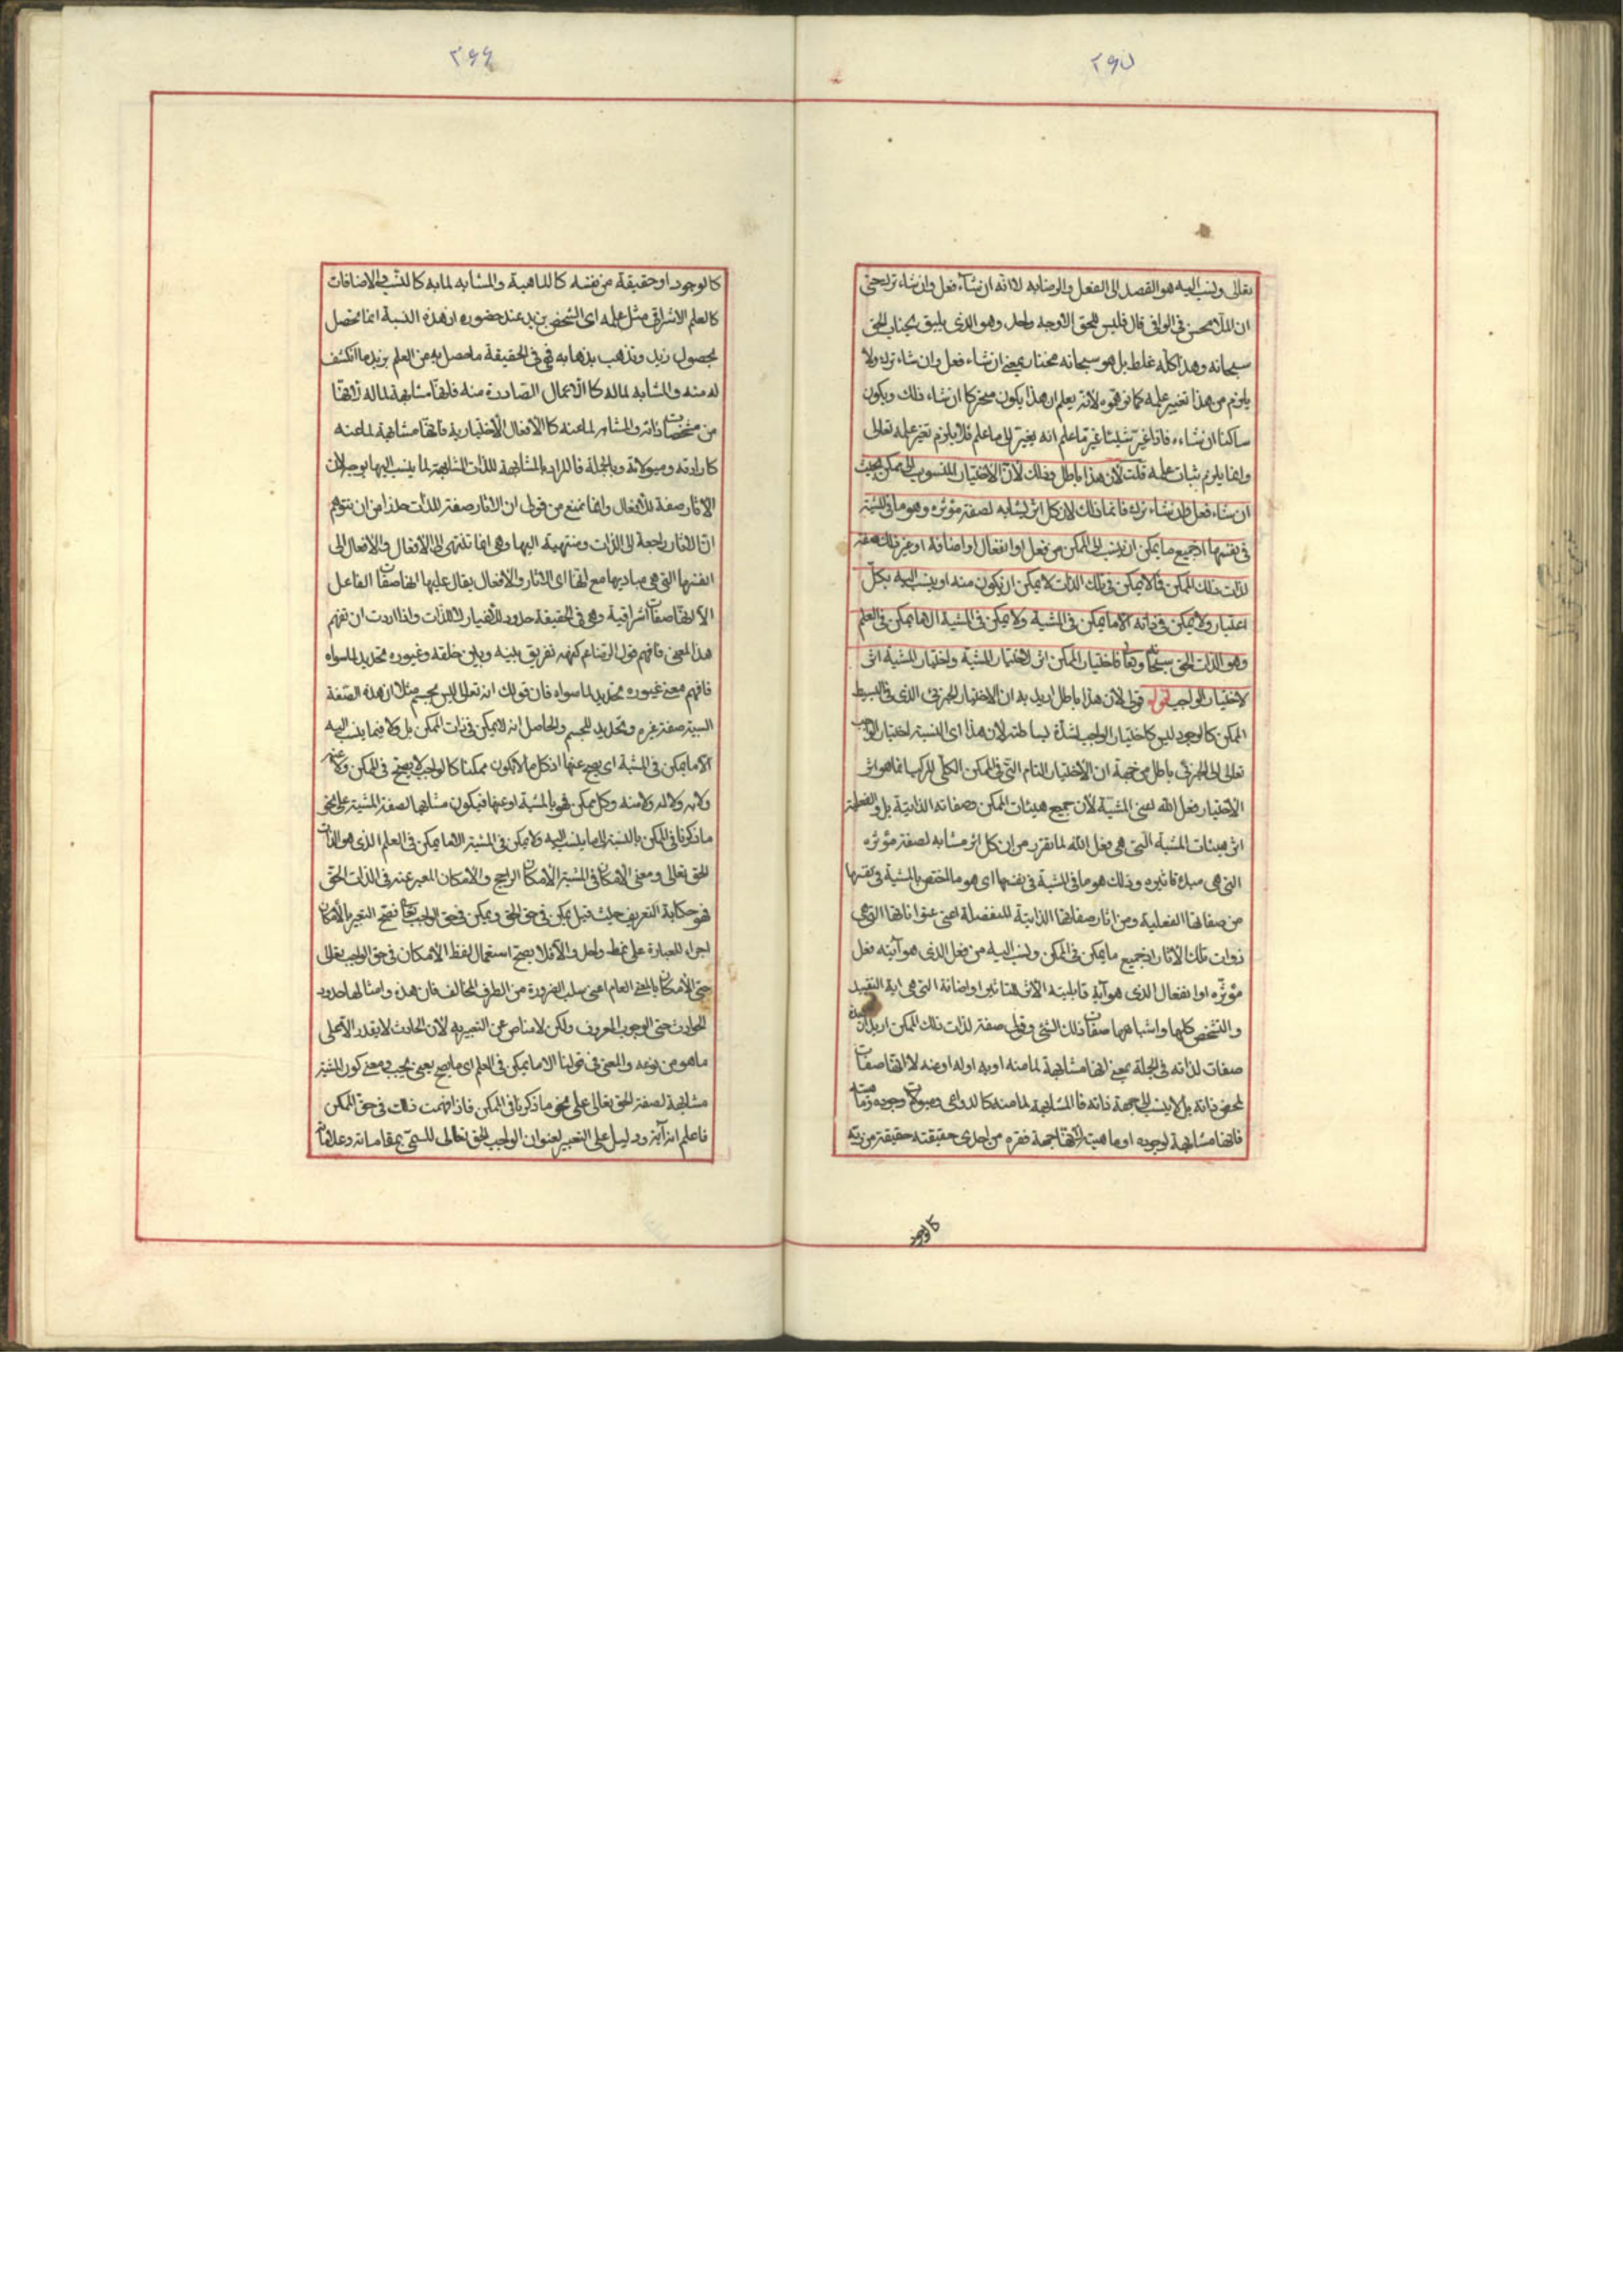 ٢٦٥
تعالى ونسب اليه هو القصد الى الفعل والرضا به لا انه ان شاء فعل وان شاء ترك حتى
ان الملا محسن فى الوافى قال فليس للحق الا وجه واحد وهو الذى يليق بجناب الحق
سبحانه وهذا كله غلط بل هو سبحانه مختار بمعنى ان شاء فعل وان شاء ترك ولا
يلزم من هذا تغيير علمه كما توهموه لانه يعلم ان هذا يكون متحركا ان شاء ذلك ويكون
ساكنا ان شاءه فاذا غيّر شيئا غيّر ما علم انه يغيّر الى ما علم فلا يلزم تغيّر علمه تعالى
وانما يلزم ثبات علمه قلت لأن هذا باطل وذلك لأنّ الاختيار المنسوب الى ممكن بحيث
ان شاء فعل وان شاء ترك فانما ذلك لان كل اثر يشابه لصفة مؤثره وهو ما فى المشية
فى نفسها اذ جميع ما يمكن ان ينسب الى الممكن من فعل او انفعال او اضافة او غير ذلك صفة
لذات ذلك الممكن فما لا يمكن فى تلك الذات لا يمكن ان يكون منه او ينسب اليه بكلّ
اعتبار ولا يمكن فى ذاته الا ما يمكن فى المشية ولا يمكن فى المشية الا ما يمكن فى العلم
وهو الذات الحق سبحانه وتعالى فاختيار الممكن اثر لاختيار المشية واختيار المشية اثر
لاختيار الواجب اقول قولى لأن هذا باطل اريد به ان الاختيار الجزئى الذى فى البسيط
الممكن كالوجود ليس كاختيار الواجب لشدّة بساطته لأن هذا اى النسبة اختيار الواجب
تعالى الى الجزئى باطل من جهة ان الاختيار التام الذى فى الممكن الكلّى المركب انما هو اثر
الاختيار فعل الله اعنى المشية لأن جميع هيئات الممكن وصفاته الذاتية بل والفعلية
اثر هيئات المشية التى هى فعل الله لما تقرر من ان كل اثر مشابه لصفة مؤثره
التى هى مبدأ تأثيره وذلك هو ما فى المشية فى نفسها اى هو ما اختص بالمشية فى نفسها
من صفاتها الفعلية ومن اثار صفاتها الذاتية المنفصلة اعنى عنواناتها التى هى
ذوات تلك الاثار اذ جميع ما يمكن فى الممكن وينسب اليه من فعل الذى هو آية فعل
مؤثّره او انفعال الذى هو آية قابلية الاثر للتاثير او اضافة التى هى اية التقييد
والتشخص كلها واشباهها صفات ذلك الشئ وقولى صفة لذات ذلك الممكن اريد ان
صفات لذاته فى الجملة بمعنى انها مشابهة لما منه او به او له او عنه لا انها صفات
لمحض ذاته بل لا ينسب الى جهة ذاته فالمشابهة لما منه كالدواعى وميولات وجوده وماهيته
فانها مشابهة لوجوده او ماهيته لانها جهة فقره من احدى حقيقته حقيقة من ربه
كالوجود
٢٦٦
كالوجود او حقيقة من نفسه كالماهية والمشابه لما به كالنسب والاضافات
كالعلم الاشراقى مثل علمه اى الشخص بزيد عند حضوره اذ هذه النسبة انما تحصل
بحصول زيد وتذهب بذهابه فهى فى الحقيقة ما حصل به من العلم بزيد ما انكشف
له منه والمشابه لما له كالاعمال الصادرة منه فانها مشابهة لما له لانها
من مشخصات ذاته والمشابه لما عنه كالأفعال الأختيارية فانها مشابهة لما عنه
كارادته وميولاته وبالجملة فالمراد بالمشابهة للذات المشابهة لما ينسب اليها بوجه لان
الاثار صفة للأفعال وانما نمنع من قولى ان الاثار صفة للذات حذرا من ان يتوهم
انّ الاثار راجعة الى الذات ومنتهية اليها وهى انما تنتهى الى الافعال والافعال الى
انفسها التى هى مباديها مع انها اى الاثار والافعال يقال عليها انها صفات الفاعل
الا انها صفات اشراقية وهى فى الحقيقة حدود للأغيار لا للذات واذا اردت ان تفهم
هذا المعنى فافهم قول الرضا ع كنهه تفريق بينه وبين خلقه وغيوره تحديد لما سواه
فافهم معنى غيوره تحديد لما سواه فان قولك انه تعالى ليس بجسم مثلا ان هذه الصفة
السبية صفة غيره وتحديد للجسم والحاصل انه لا يمكن فى ذات الممكن بل ولا فيما ينسب اليه
الا ما يمكن فى المشية اى يصح عنها اذ كل ما لا يكون ممكنا كالواجب لا يصح فى الممكن ولا عنه
ولا به ولا له ولا منه وكل ممكن فهو بالمشية او عنها فيكون مشابها لصفة المشية على نحو
ما ذكرنا فى الممكن بالنسبة الى ما ينسب اليه ولا يمكن فى المشية الا ما يمكن فى العلم الذى هو الذات
الحق تعالى ومعنى الأمكان فى المشية الأمكان الراجح والأمكان المعبر عنه فى الذات الحق
فهو حكاية التعريف حيث قيل يمكن فى حق الحق ويمكن فى حق الواجب تعالى فصح التعبير بالأمكان
اجراء للعبارة على نمط واحد والّا فلا يصح استعمال لفظ الأمكان فى حق الواجب تعالى
حتى الأمكان بالمعنى العام اعنى سلب الضرورة من الطرف المخالف فان هذه وامثالها حدود
الحوادث حتى الوجوب المعروف ولكن لا مناص عن التعبير به لأن الحادث لا يقدر الا على
ما هو من نوعه والمعنى فى قولنا الا ما يمكن فى العلم اى ما يصح يعنى يجب ومعنى كون المشية
مشابهة لصفة الحق تعالى على نحو ما ذكرنا فى الممكن فاذا فهمت ذلك فى حق الممكن
فاعلم انه آية ودليل على التعبير لعنوان الواجب الحق تعالى المسمّى بمقاماته وعلاماته